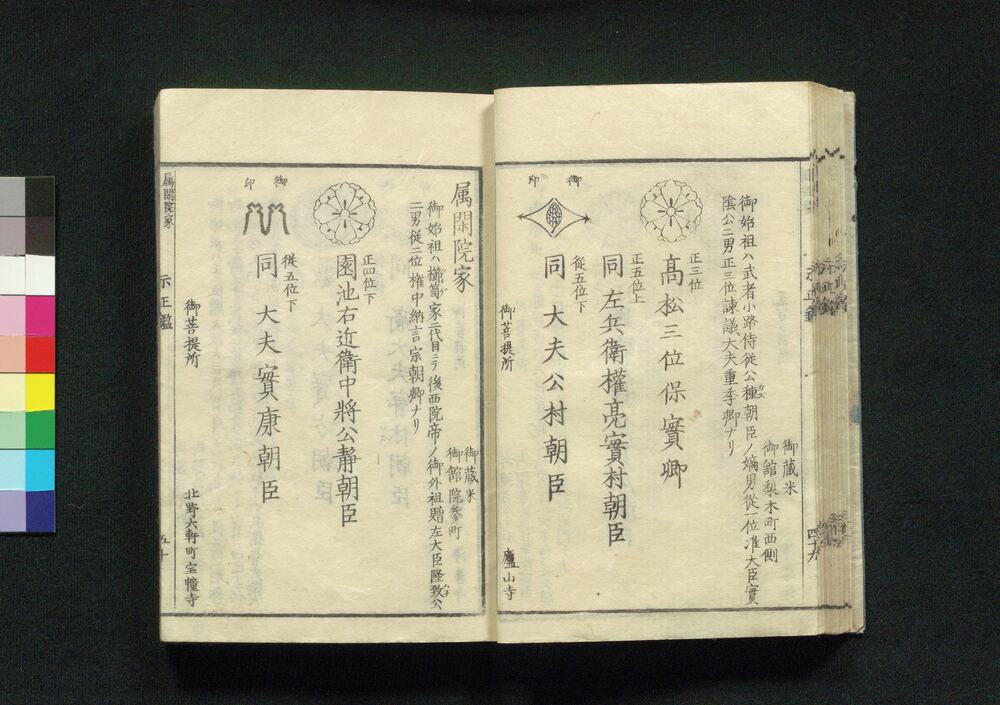 御蔵米
御舘梨木町西側
御始祖ハ武者小路侍従公種朝臣ノ嫡男従一位准大臣實
陰公二男正三位諫議大夫重季卿ナリ
正三位
髙松三位保實卿
正五位上
同 左兵衛權亮實村朝臣
御印
従五位下
同 大夫公村朝臣
御菩提所
廬山寺
四十九
属閑院家
御蔵米
御舘院参町
御始祖ハ櫛笥家二代目ニテ後西院帝ノ御外祖贈左大臣隆致公
二男従二位権中納言宗朝卿ナリ
正四位下
園池右近衛中將公静朝臣
御印
従五位下
同 大夫實康朝臣
御菩提所
北野六軒町宝幢寺
属閑院家
五十